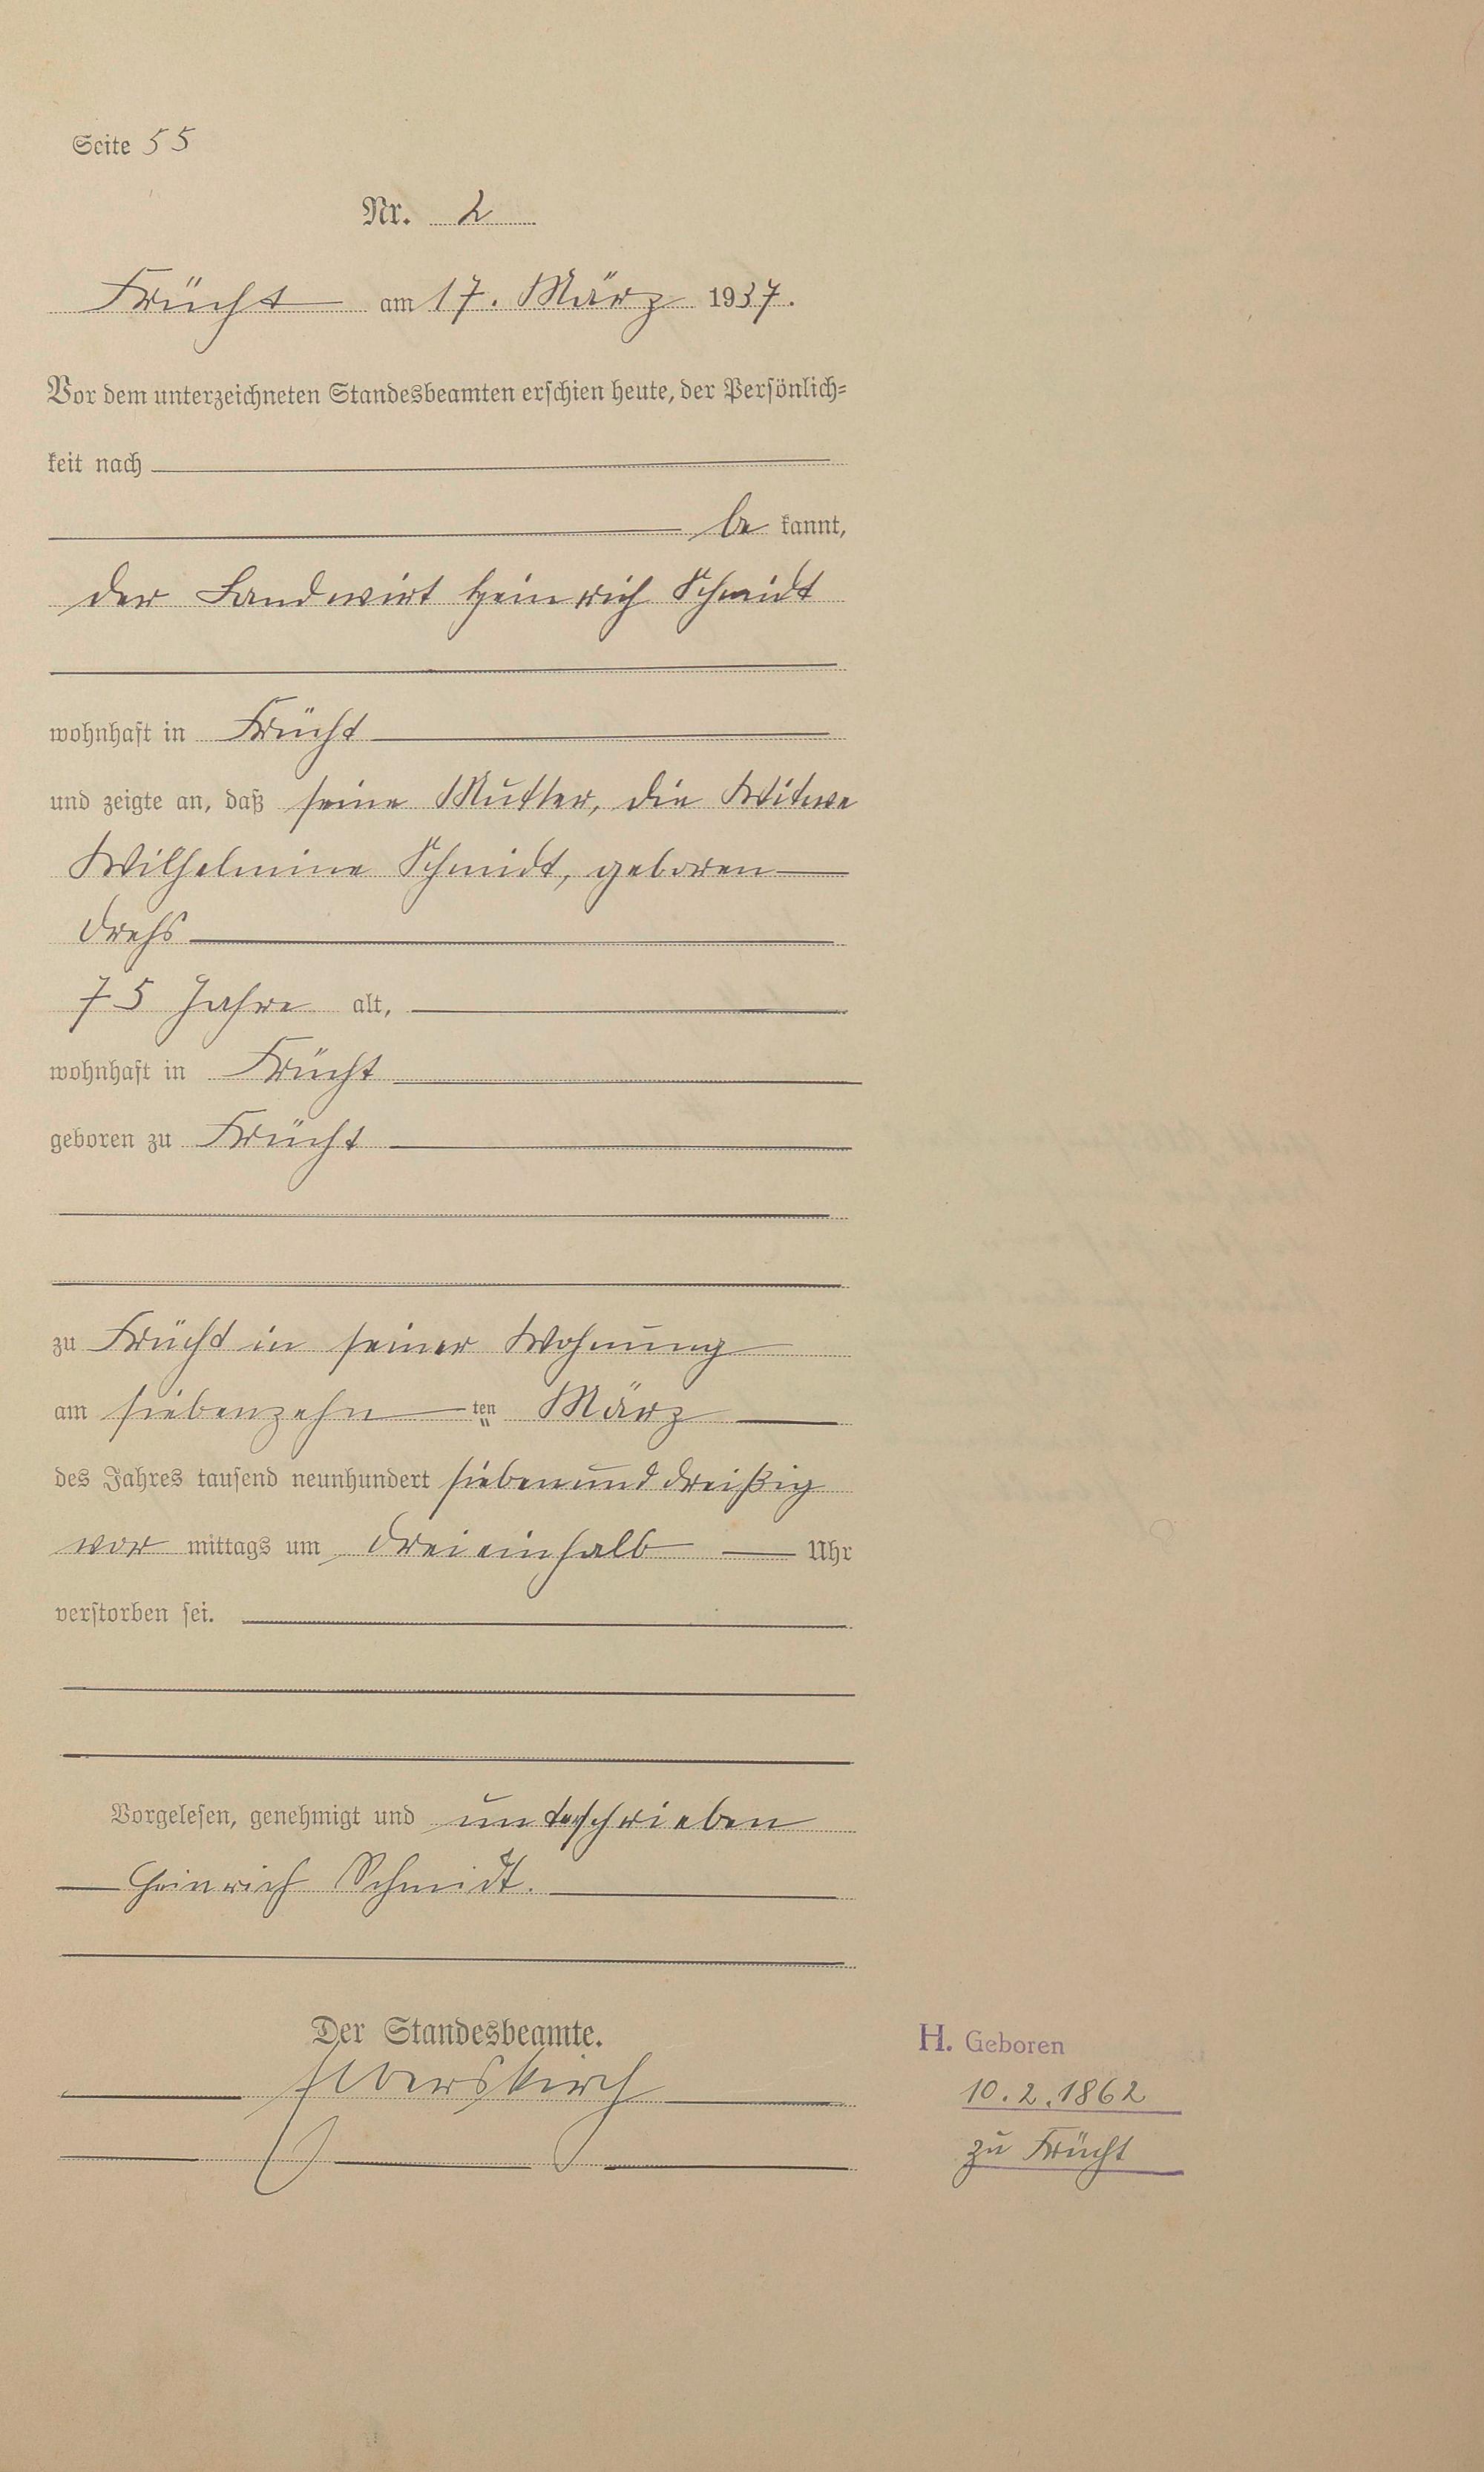 Seite 55
Nr. 2
Frücht am 17. März 1937.
Vor dem unterzeichneten Standesbeamten erschien heute, der Persönlich=
keit nach
be kannt,
der Landwirt Heinrich Schmidt
wohnhaft in Frücht
und zeigte an, daß seine Mutter, die Witwe
Wilhelmine Schmidt, geboren
Drehs
75 Jahre alt,
wohnhaft in Frücht
geboren zu Frücht
zu Frücht in seiner Wohnung
am siebenzehn ten März
des Jahres tausend neunhundert siebenunddreißig
vor mittags um dreieinhalb Uhr
verstorben sei.
Vorgelesen, genehmigt und unterschrieben
Heinrich Schmidt.
Der Standesbeamte.
H. Geboren
10.2.1862
zu Frücht